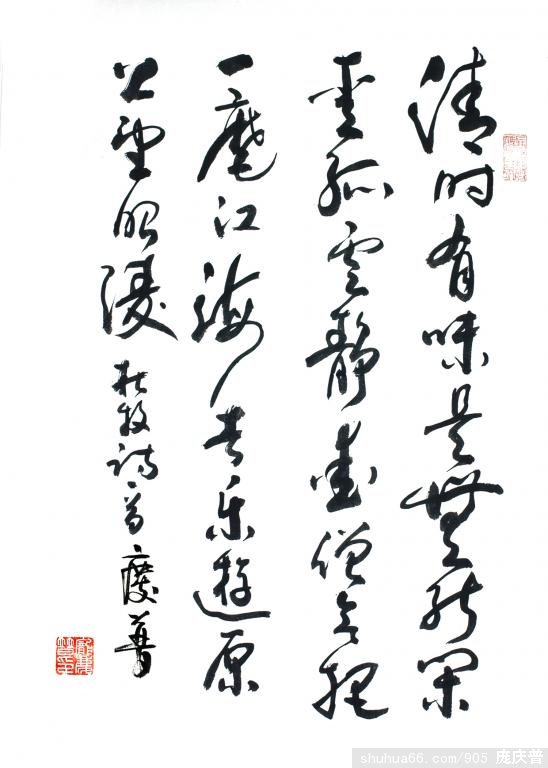 清时有味是無能闲
爱孤雲靜愛僧欲把
一麾江海去乐遊原
上望昭陵 杜牧诗一首 慶普
shuhua66.com/905 庞庆普